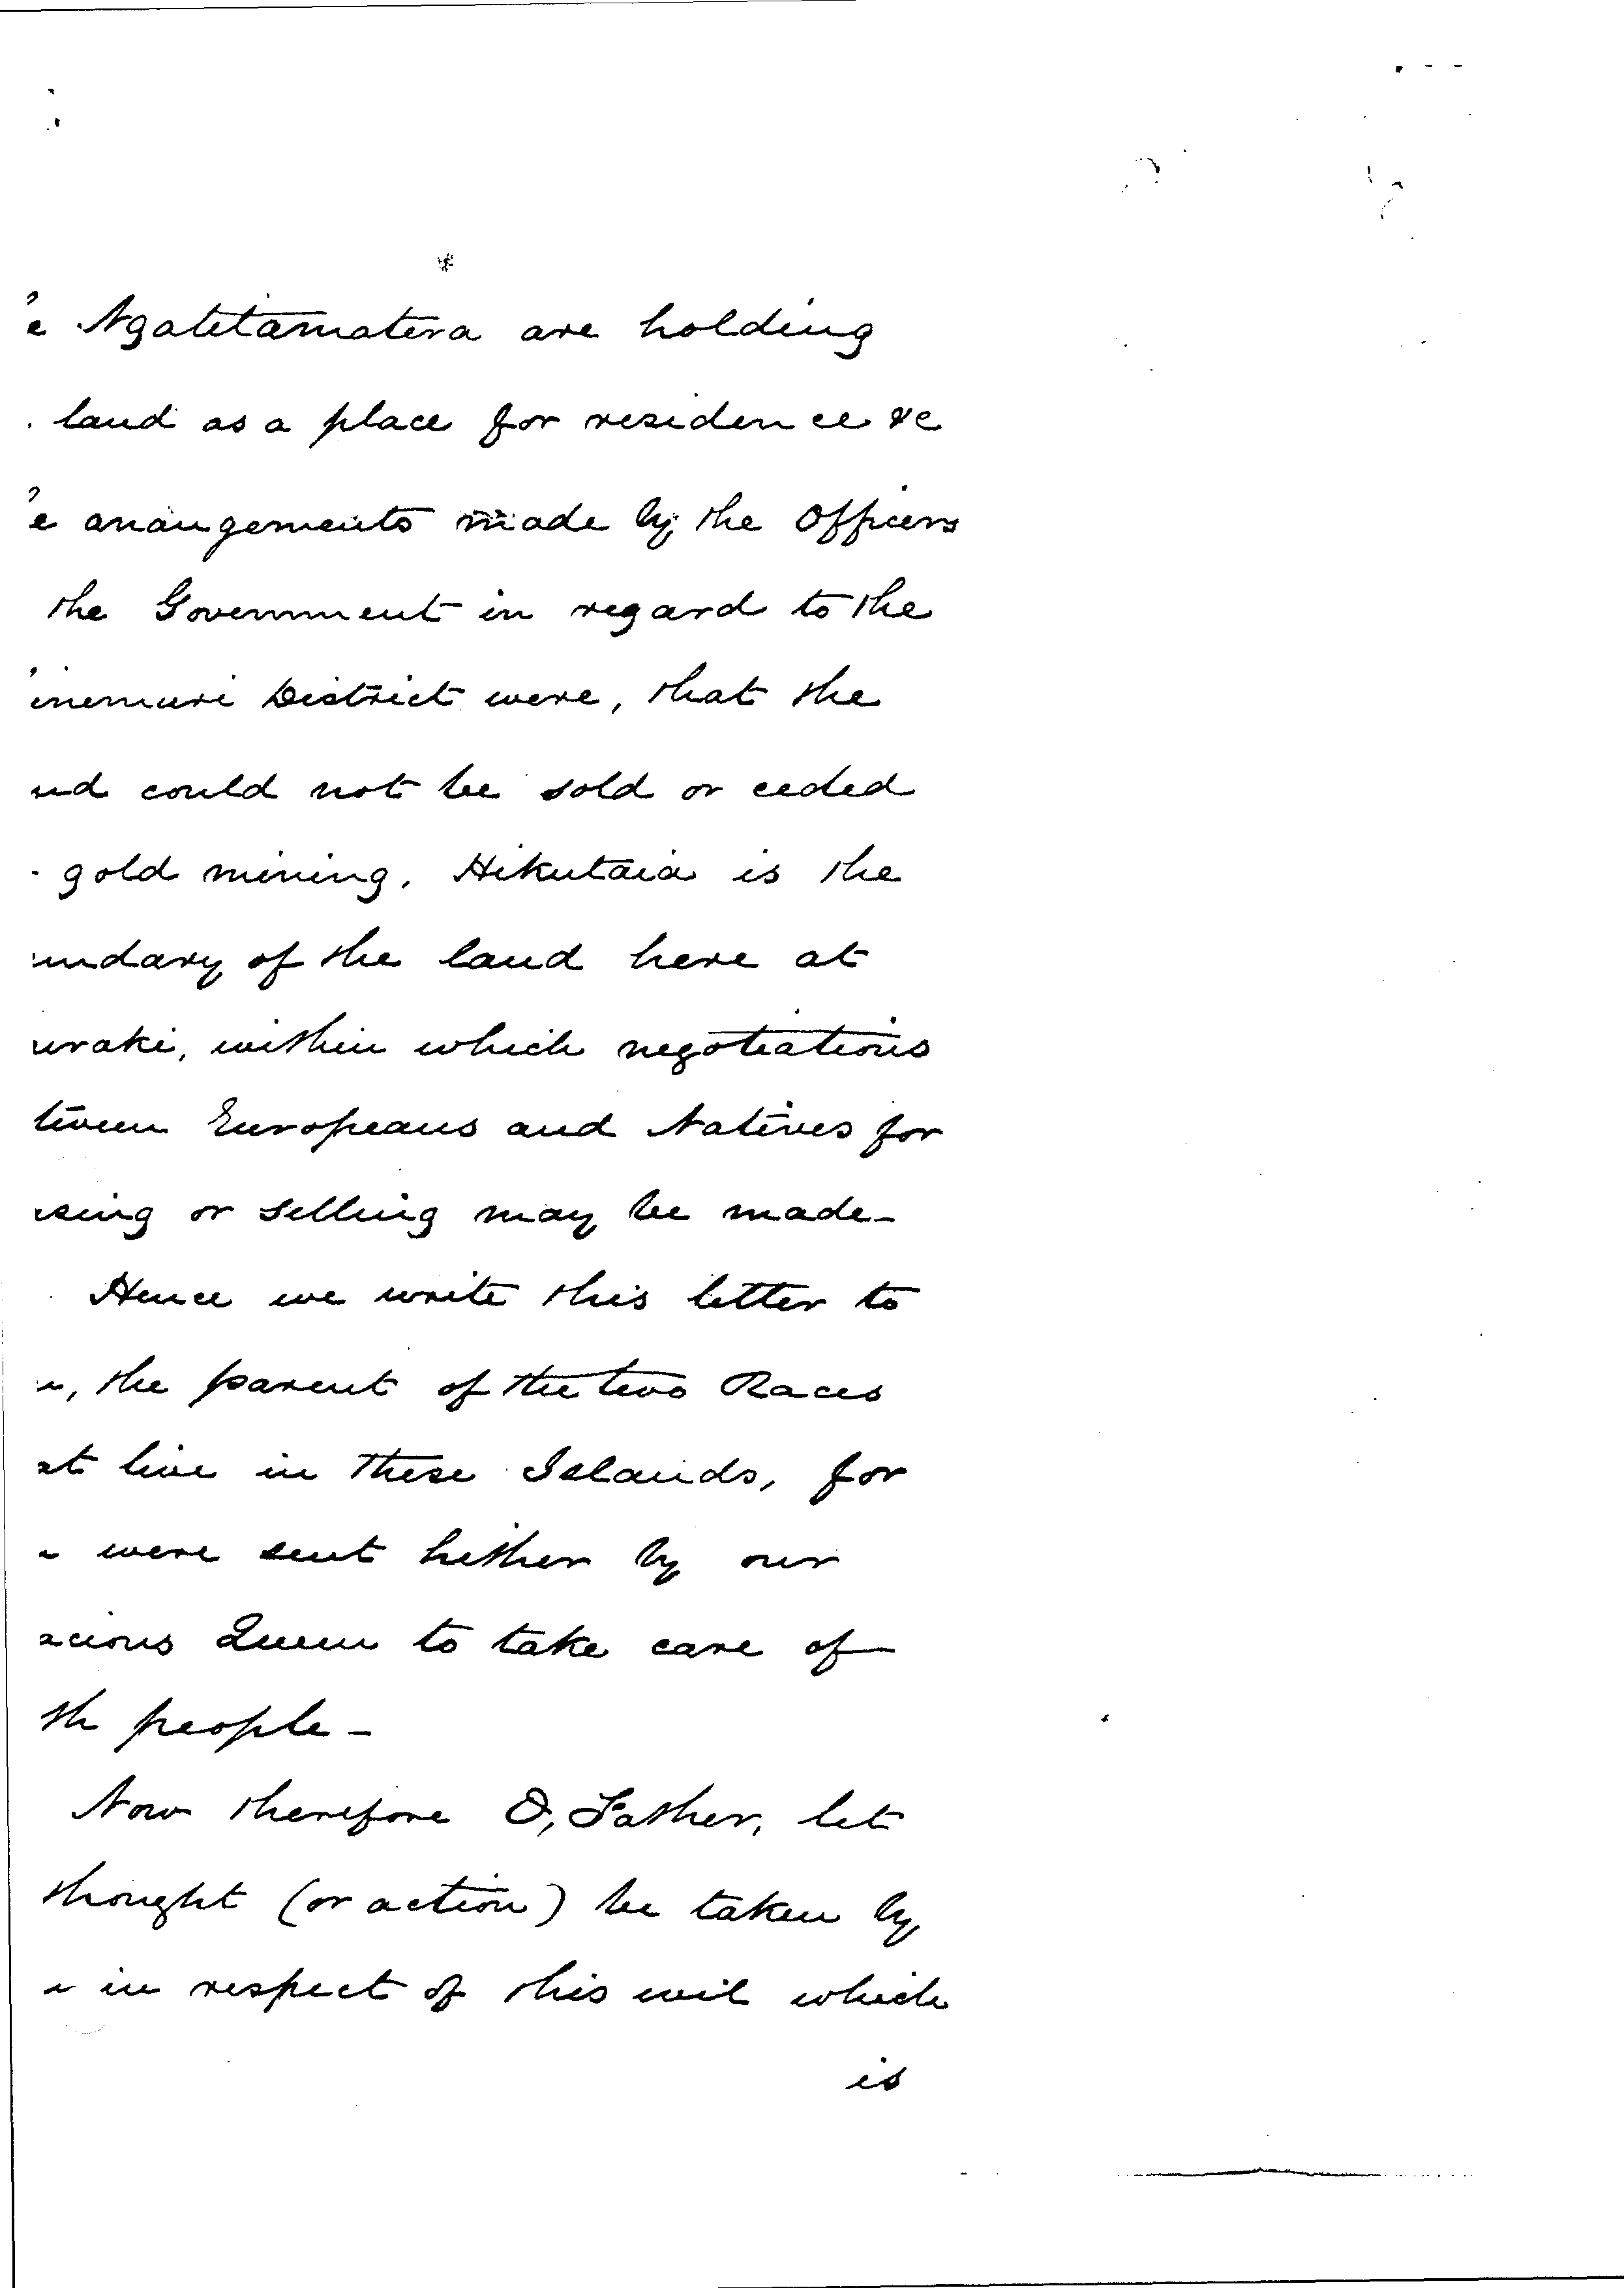 e Ngatitamatera are holding
land as a place for residence &c
e arrangements made by the Officers
the Government in regard to the
inemuri District were, that the
nd could not be sold or ceded
gold mining. Hikutaia is the
undary of the land here at
uraki, within which negotiations
tween Europeans and Natives for
sing or selling may be made-
Hence we write this letter to
u, the parent of the two Races
at live in these Islands, for
u were sent hither by our
acious Queen to take care of
th people-
Now therefore O, Father, let
thought (or action) be taken by
u in respect of this evil which
is